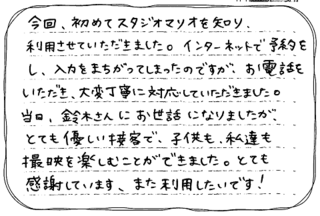 今回、初めてスタジオマリオを知り、
利用させていただきました。インターネットで予約を
し、入力をまちがってしまったのですが、お電話を
いただき、大変丁寧に対応していただきました。
当日、鈴木さんにお世話になりましたが、
とても優しい接客で、子供も、私達も
撮映を楽しむことができました。とても
感謝しています、また利用したいです!